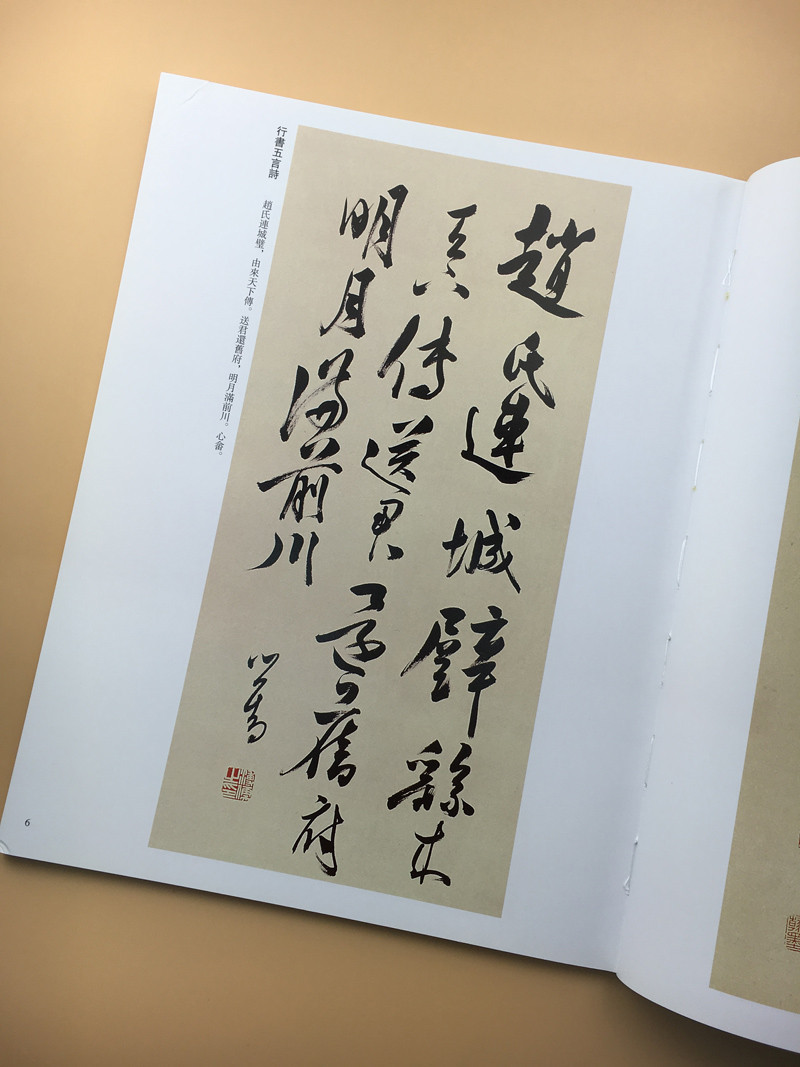 行書五言詩
趙氏連城璧，由來天下傳。送君還舊府，明月滿前川。心畬。
趙氏連城璧繇来
天下傳送君還舊府
明月滿前川
心畬
溥儒之印
6